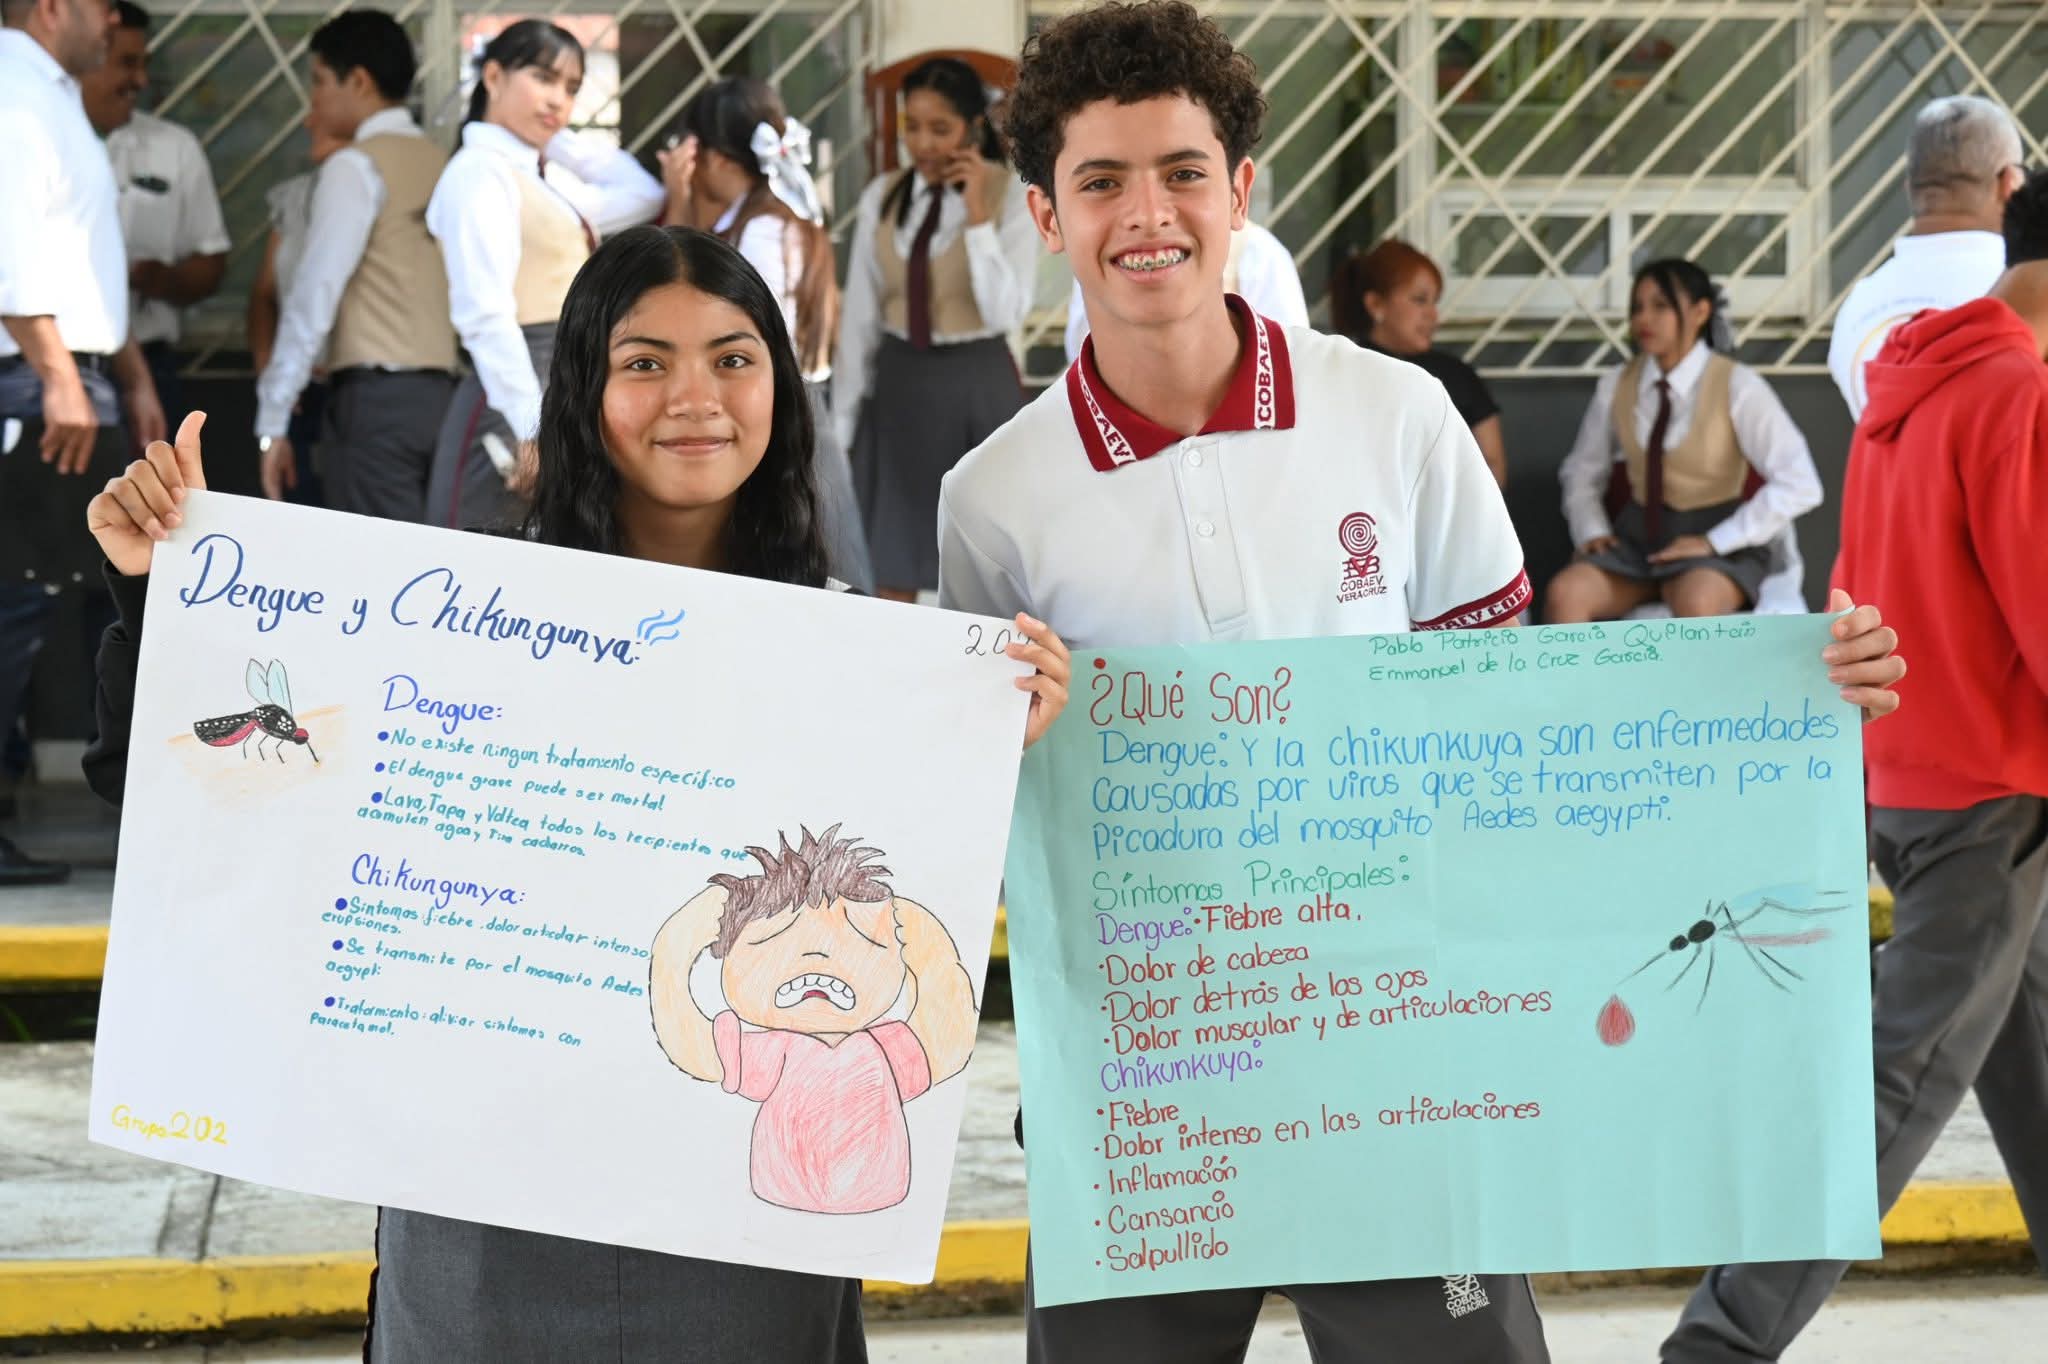 Dengue y Chikungunya:
Dengue:
•No existe ningun tratamiento especifico
•El dengue grave puede ser mortal
•Lava, Tapa y Voltea todos los recipientes que
acumulen agua y Tira cacharros.
Chikungunya:
•Sintomas: fiebre, dolor articular intenso,
erupsiones.
•Se transmite por el mosquito Aedes
aegypti:
•Tratamiento: aliviar sintomas con
paracetamol.
Grupo 202
COBAEV
COBAEV
COBAEV
VERACRUZ
COBAEV
Pablo Patricio García
Emmanuel de la Cruz García.
¿Qué Son?
Dengue: Y la chikunkuya son enfermedades
Causadas por virus que se transmiten por la
Picadura del mosquito Aedes aegypti.
Síntomas Principales:
Dengue: •Fiebre alta.
•Dolor de cabeza
•Dolor detrás de los ojos
•Dolor muscular y de articulaciones
Chikunkuya:
•Fiebre
•Dolor intenso en las articulaciones
•Inflamación
•Cansancio
•Salpullido
COBAEV
VERACRUZ